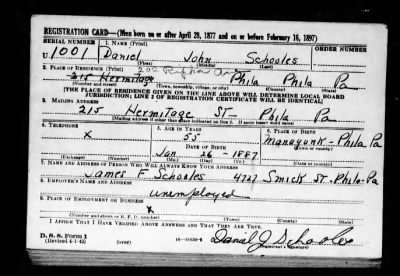 REGISTRATION CARD—(Men born on or after April 28, 1877 and on or before February 16, 1897)
SERIAL NUMBER 1. NAME (Print) ORDER NUMBER
U 1001 Daniel John Schooles
(First) (Middle) (Last)
2. PLACE OF RESIDENCE (Print)
215 Hermitage Phila Phila Pa
(Number and street) (Town, township, village, or city) (County) (State)
[THE PLACE OF RESIDENCE GIVEN ON THE LINE ABOVE WILL DETERMINE LOCAL BOARD
JURISDICTION; LINE 2 OF REGISTRATION CERTIFICATE WILL BE IDENTICAL]
3. MAILING ADDRESS
215 Hermitage St— Phila Pa
[Mailing address if other than place indicated on line 2. If same insert word same]
4. TELEPHONE 5. AGE IN YEARS 6. PLACE OF BIRTH
x 55
DATE OF BIRTH Manayunk-Phila
(Town or county)
Jan 26 1887 Pa
(Exchange) (Number) (Mo.) (Day) (Yr.) (State or country)
7. NAME AND ADDRESS OF PERSON WHO WILL ALWAYS KNOW YOUR ADDRESS
James F Schooles 4727 Smick St-Phila-Pa
8. EMPLOYER'S NAME AND ADDRESS
unemployed
9. PLACE OF EMPLOYMENT OR BUSINESS
x
(Number and street or R. F. D. number) (Town) (County) (State)
I AFFIRM THAT I HAVE VERIFIED ABOVE ANSWERS AND THAT THEY ARE TRUE.
D. S. S. Form 1
(Revised 4-1-42) (over) Daniel J Schooles
(Registrant's signature)